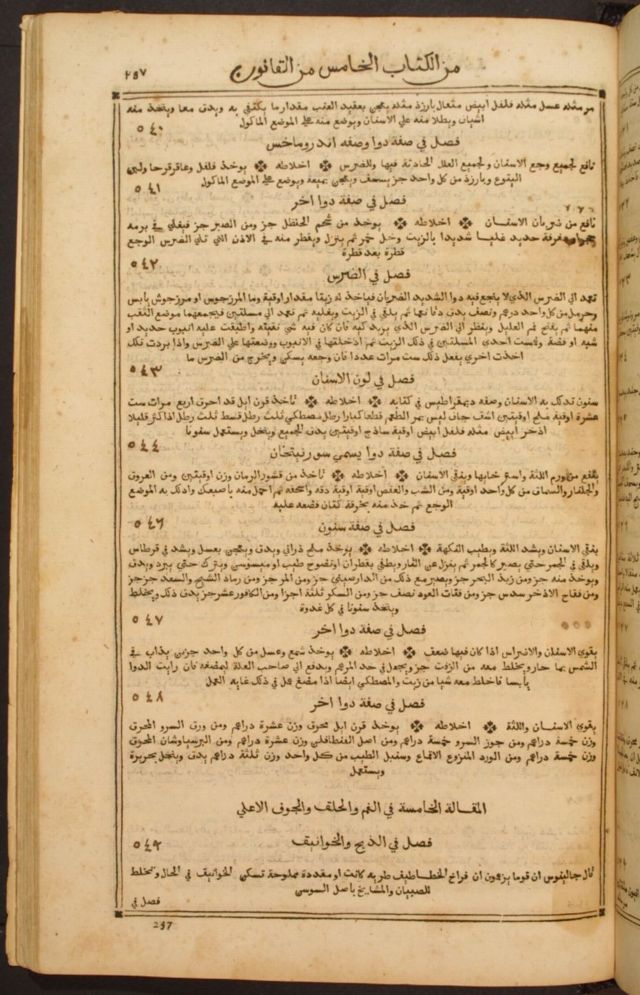 ٢٥٧
من الكتاب الخامس من القانون
من مثله عسل مثله فلفل ابيض مثقال بارزذ مثله يعجن بعقيد العنب مقدار ما يكتفي به ويدق معا ويتخذ منه
اشياف ويطلا منه علي الاسنان ويوضع منه علي الموضع الماكول
٥٤٠
فصل في صفة دوا وصفه اندروماخس
نافع لجميع وجع الاسنان ولجميع العلل الحادثة فيها وللضرس اخلاطه يوخذ فلفل وعاقرقرحا ولبن
اليتوع وبارزذ من كل واحد جز يسحق ويعجن بميعة ويوضع علي الموضع الماكول
٥٤١
فصل في صفة دوا اخر
نافع من ضربان الاسنان اخلاطه يوخذ من شحم الحنظل جز ومن الصبر جز فيغلي في برمه
مغرفة حديد غليا شديدا بالزيت وخل خمر ثم ينزل ويقطر منه في الاذن التي تلي الضرس الوجع
قطرة بعد قطرة
٥٤٢
فصل في الضرس
تعمد الي الضرس الذي لا ينجع فيه دوا الشديد الضربان فياخذ له زيتا مقدار اوقية وما المرزجوس او مرزجوش يابس
وحرمل من كل واحد درهم ونصف يدق دقا نعما ثم يلقي في الزيت ويغليه ثم تعمد الي مسلتين فيجمعهما موضع الثقب
منهما ثم يفتح فم العليل ويقطر الي الضرس الذي يريد كيه فان كان فيه شي نقيته واطبقت عليه انبوب حديد او
شبه او فضة وغمست احدي المسلتين في ذلك الزيت ثم ادخلتها في الانبوب ووضعتها علي الضرس واذا بردت تلك
اخذت اخري يفعل ذلك ست مرات عددا فان وجعه يسكن ويخرج من الضرس ما
٥٤٣
فصل في لون الاسنان
سنون تدلك به الاسنان وصفه ديمقراطيس في كتابه اخلاطه تاخذ قرن ايل قد احرق اربع مرات ست
عشرة اوقية ملح اوقيتين اشف جاف ليس بمر الطعم قطعا كبارا رطل مصطكي ثلث رطل قسط ثلث رطل اذا كثر قليلا
اذخر ابيض مثله فلفل ابيض اوقية ساذج اوقيتين يدق الجميع وينخل ويستعمل سنونا
٥٤٤
فصل في صفة دوا يسمي سورنيتخان
ينفع من تورم اللثة واسترخايها وينقي الاسنان اخلاطه تاخذ من قشور الرمان وزن اوقيتين ومن العروق
والجلنار والسماق من كل واحد اوقية ومن الشب والعفص اوقية اوقية دقه واسحقه ثم احمل منه باصبعك وادلك به الموضع
الوجع ثم خذ منه بخرقة كتان فضعه عليه
٥٤٦
فصل في صفة سنون
ينقي الاسنان ويشد اللثة ويطيب النكهة اخلاطه يوخذ ملح ذراني ويدق ويعجن بعسل ويشد في قرطاس
ويلقي في الجمر حتي يصير كالجمر ثم ينزل عن النار ويطفي بقطران او نضوح طيب او ميسوسن ويترك حتي يبرد ويدق
ويوخذ منه جز ومن زبد البحر جز ويصير مع ذلك من الدارصيني جز ومن المر جز ومن رماد الشيح والسعد جز جز
ومن فقاح الاذخر سدس جز ومن فتات العود نصف جز ومن السكر ثلثة اجزا ومن الكافور عشر جز يدق ذلك ويخلط
ويتخذ سنونا في كل غدوة
٥٤٧
فصل في صفة دوا اخر
يقوي الاسنان والاضراس اذا كان فيها ضعف اخلاطه يوخذ شمع وعسل من كل واحد جزين يذاب في
الشمس بما حار ويخلط معه من الزفت جز ويجعل في حد المرهم ويدفع الي صاحب العلة ليمضغه فان رايت الدوا
يابسا فاخلط معه شيا من زيت والمصطكي ايضا اذا مضغ عمل في ذلك غاية العمل
٥٤٨
فصل في صفة دوا اخر
يقوي الاسنان واللثة اخلاطه يوخذ قرن ايل محرق وزن عشرة دراهم ومن ورق السرو المحرق
وزن خمسة دراهم ومن جوز السرو خمسة دراهم ومن اصل الفنطافلي وزن عشرة دراهم ومن البرسياوشان المحرق
وزن خمسة دراهم ومن الورد المنزوع الاقماع وسنبل الطيب من كل واحد وزن ثلثة دراهم يدق وينخل بحريرة
ويستعمل
المقالة الخامسة في الفم والحلق والجوف الاعلي
٥٤٩
فصل في الذبح والخوانيق
قال جالينوس ان قوما يزعمون ان فراخ الخطاطيف طريه كانت او مقددة مملوحة تسكن الخوانيق في الحال ويخلط
للصبيان والمشايخ باصل السوسن
فصل في
257